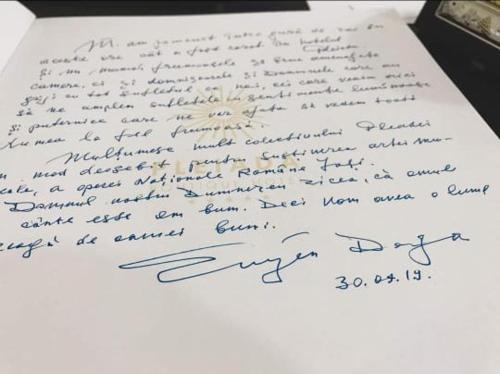 M. am pomenit între gură de rai în
aceste ore cât a fost cazat în hotelul
Pleiada
și nu numai frumoasele și bine amenajate
camere, ci și domnișoarele și Doamnele care au
grijă cu tot sufletul de noi, cei care venim aici
să ne umplem sufletele cu sentimente luminoase
și puternice care ne vor ajuta să vedem toată
lumea la fel frumoasă.
Mulțumesc mult colectivului Pleadei
în mod deosebit pentru susținerea artei mu-
cale, a operei Naționale Române Iași.
PLEIADA
BOUTIQUE
Domnul nostru Dumnezeu zicea, că omul
cânte este om bun. Deci vom avea o lume
de oameni buni.
Eugen Doga
30.09.19.